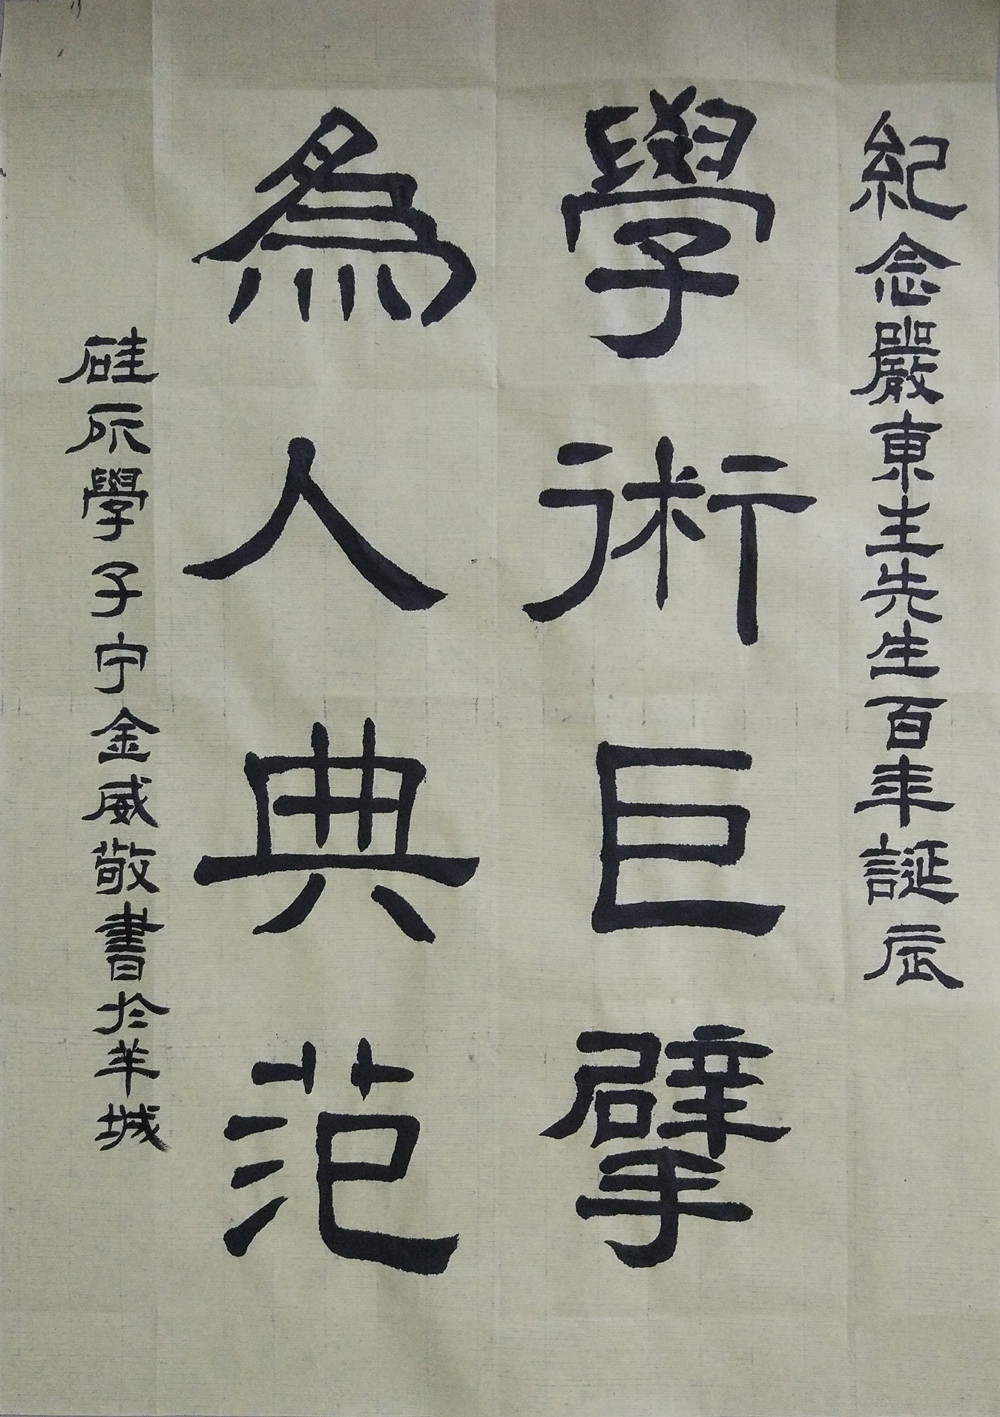 紀念嚴東生先生百年誕辰
學術巨擘
為人典范
硅所學子宁金威敬書於羊城